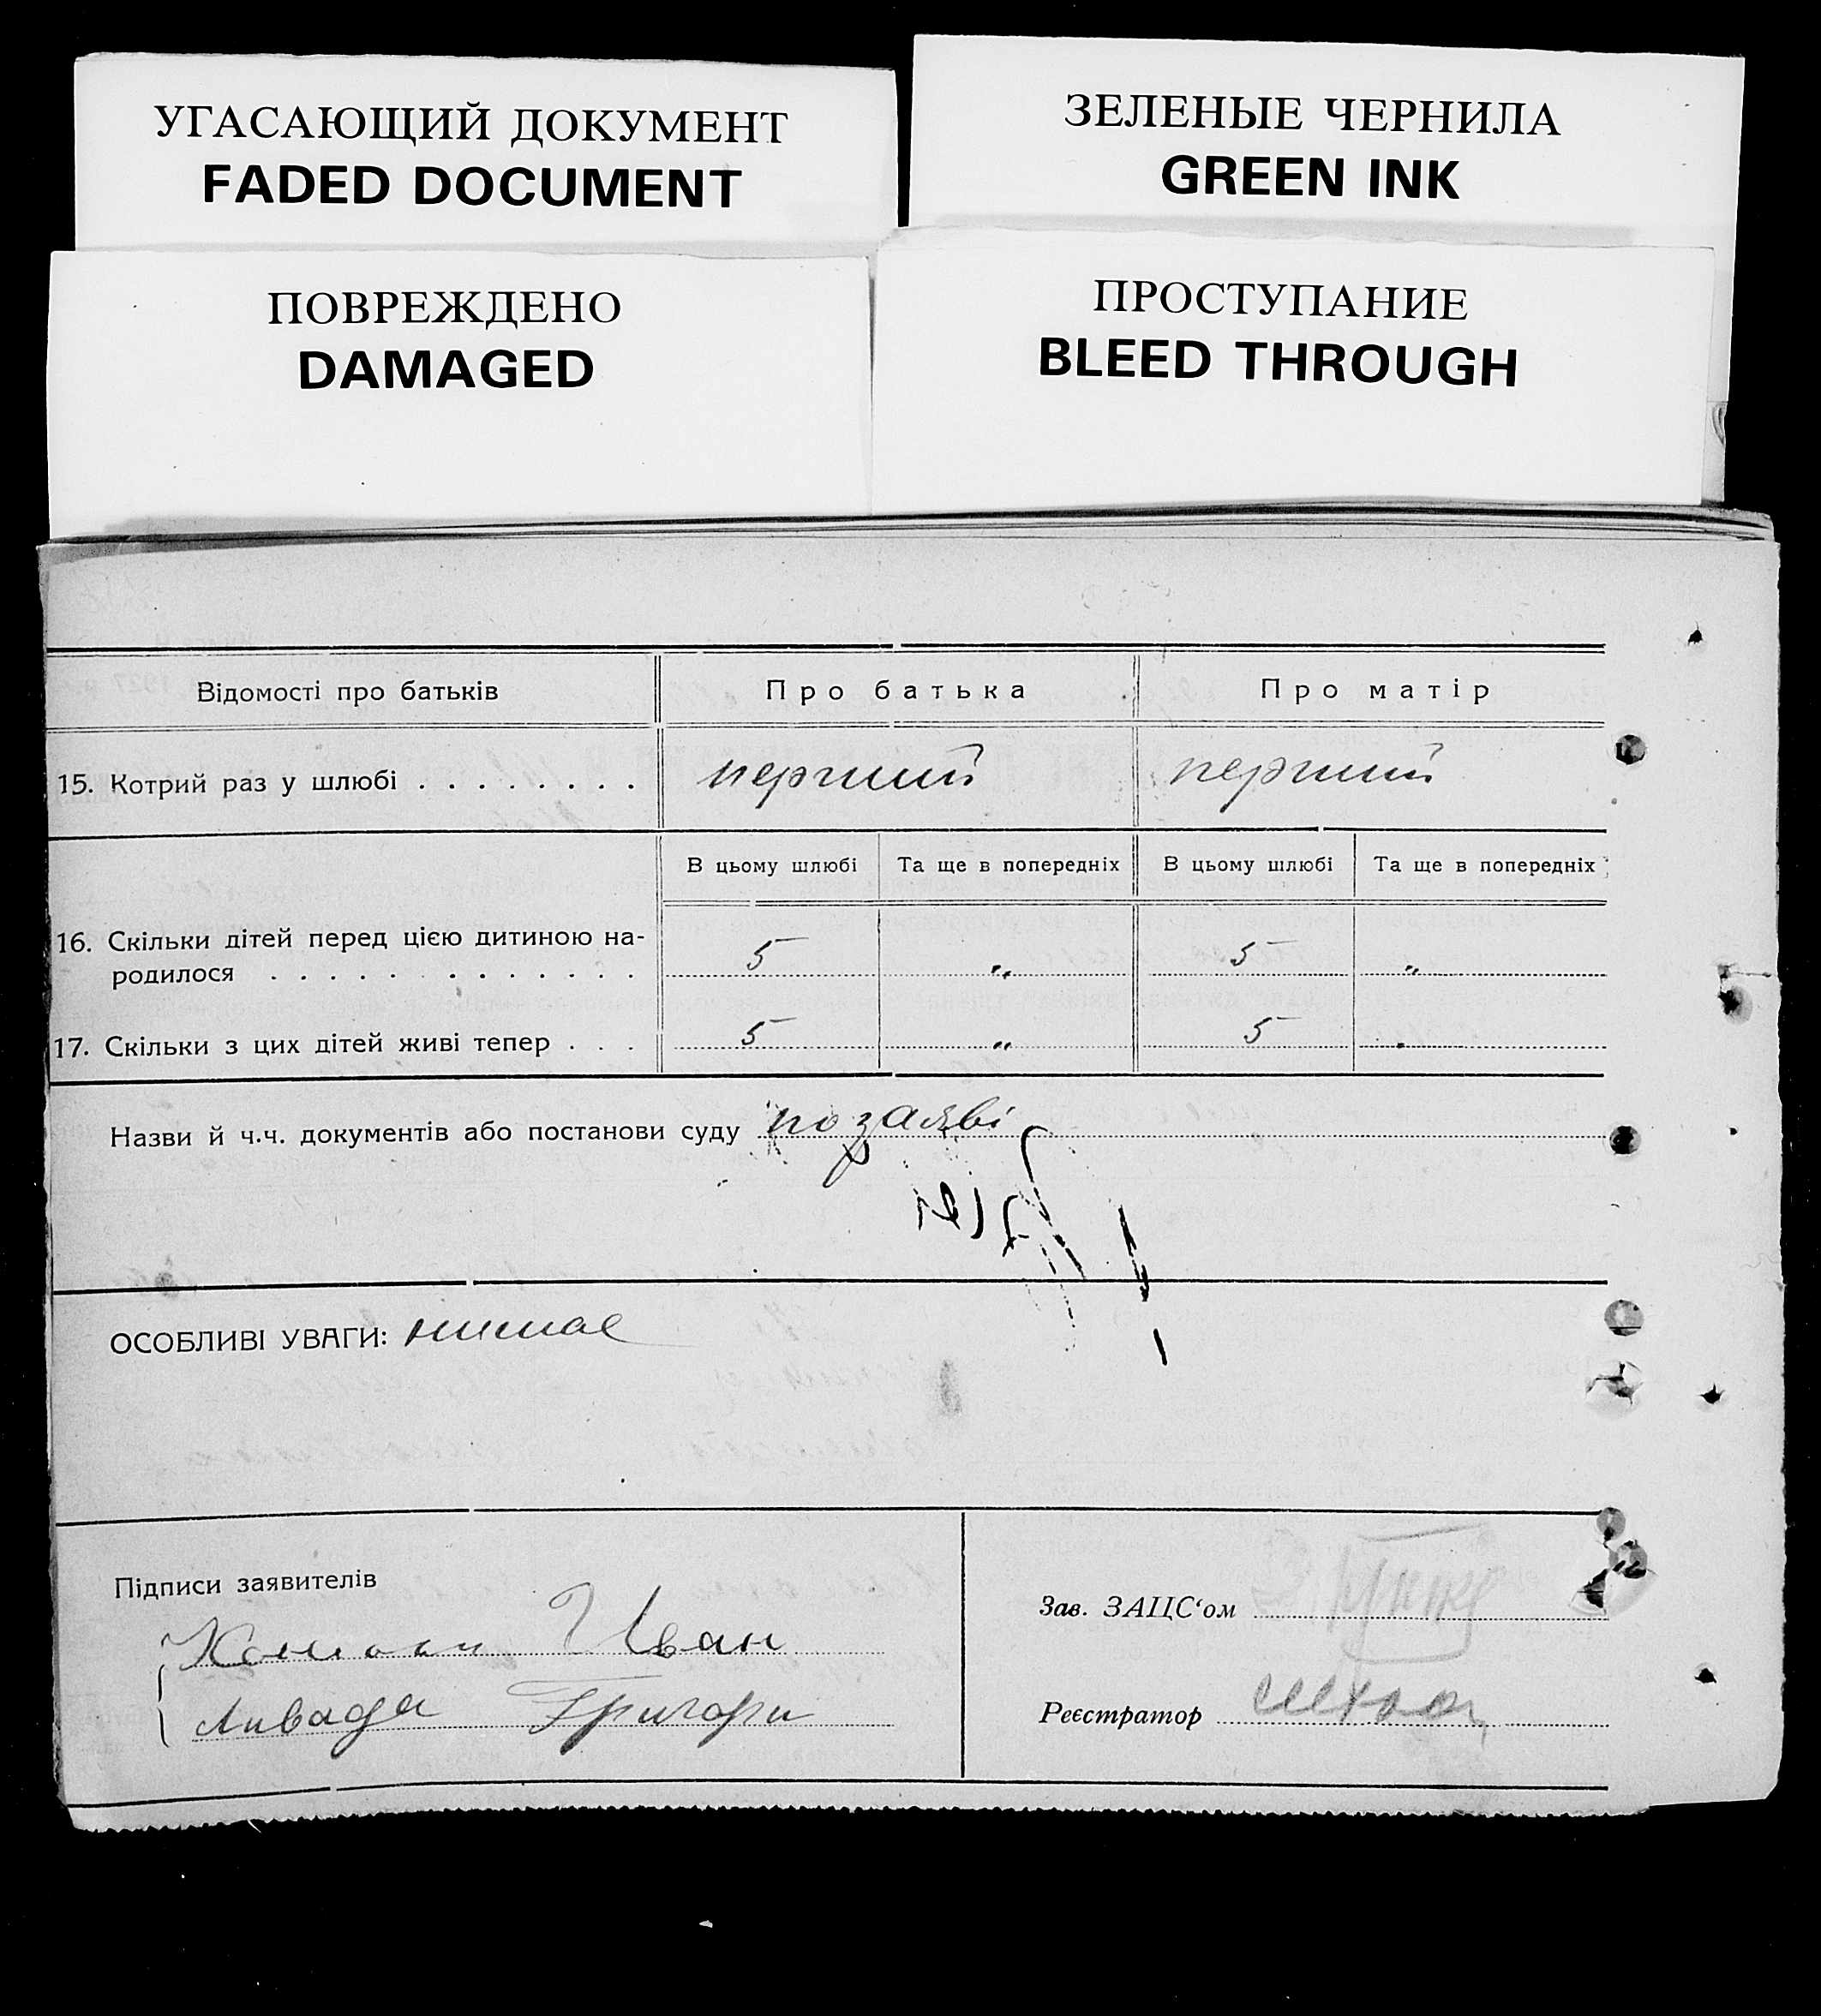 УГАСАЮЩИЙ ДОКУМЕНТ
FADED DOCUMENT
ЗЕЛЕНЫЕ ЧЕРНИЛА
GREEN INK
ПОВРЕЖДЕНО
DAMAGED
ПРОСТУПАНИЕ
BLEED THROUGH
Відомості про батьків Про батька Про матір
15. Котрий раз у шлюбі . . . . . . . . перший перший
В цьому шлюбі Та ще в попередніх В цьому шлюбі Та ще в попередніх
16. Скільки дітей перед цією дитиною на-
родилося . . . . . . . . . . . . . 5 „ 5 „
17. Скільки з цих дітей живі тепер . . . 5 „ 5
Назви й ч.ч. документів або постанови суду по заяві
ОСОБЛИВІ УВАГИ: нимає
Підписи заявителів
Зав. ЗАЦС‘ом
Иван
Ливада Григори
Реєстратор